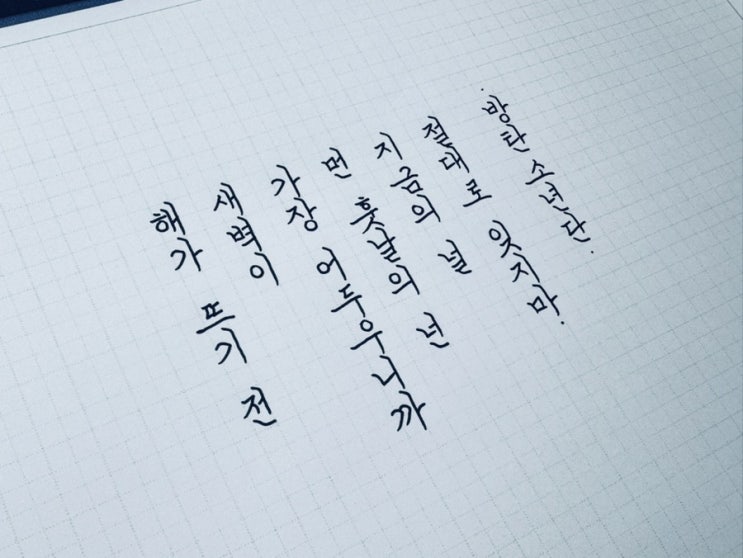 해가 뜨기 전
새벽이
가장 어두우니까
먼 훗날의 넌
지금의 널
절대로 잊지마.
방탄 소년단.